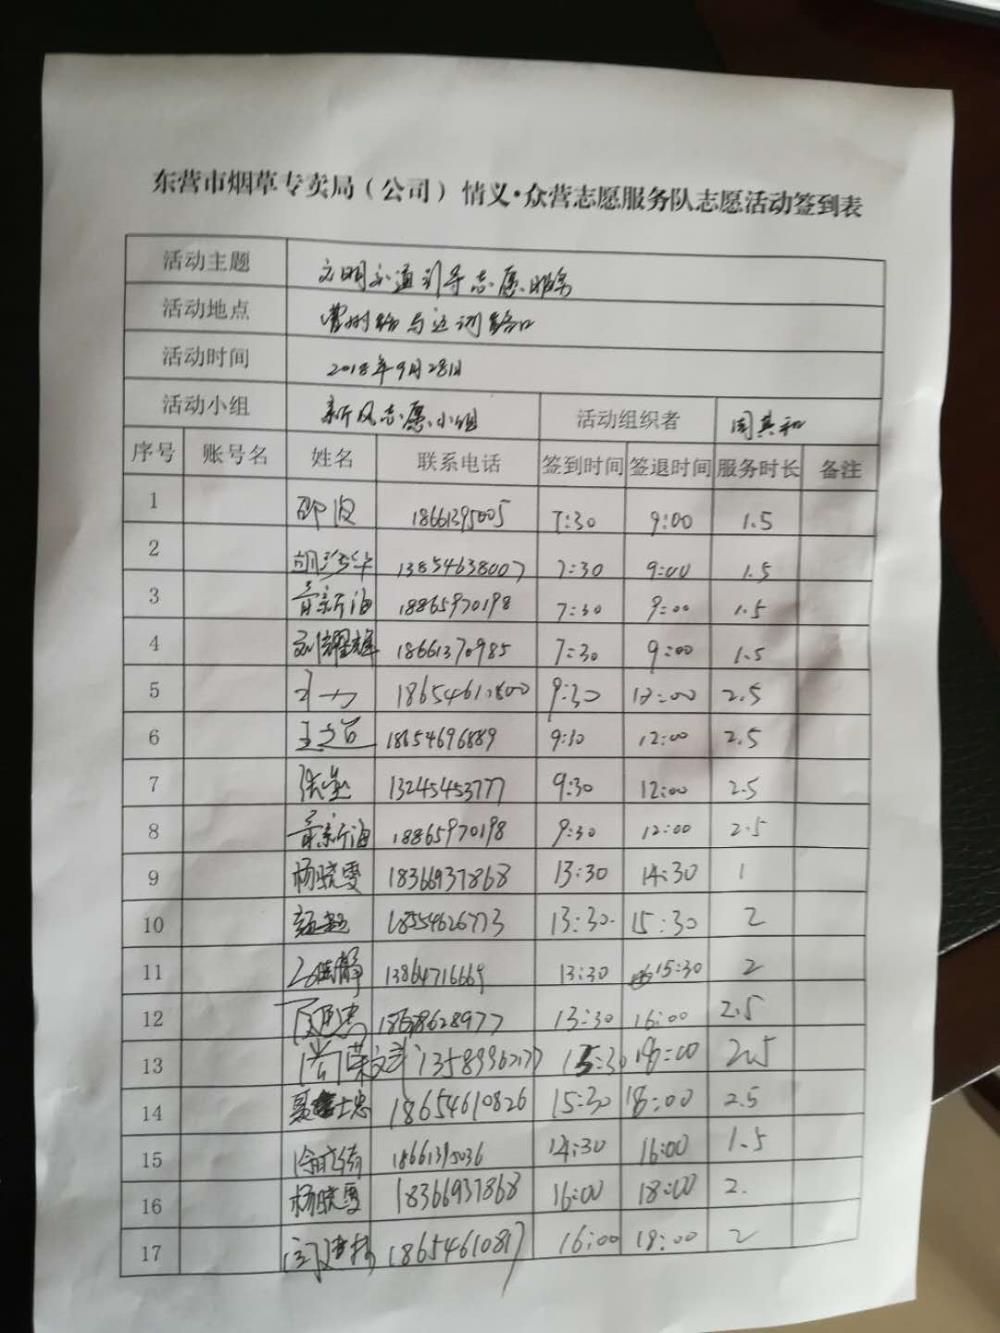 东营市烟草专卖局（公司）情义·众营志愿服务队志愿活动签到表
活动主题 文明交通引导志愿服务
活动地点 路口
活动时间 2018年9月28日
活动小组 新风志愿小组 活动组织者 周其和
序号 账号名 姓名 联系电话 签到时间 签退时间 服务时长 备注
1 邵波 18661395005 7:30 9:00 1.5
2 胡珍华 13854638007 7:30 9:00 1.5
3 新海 18865970198 7:30 9:00 1.5
4 刘耀辉 18661370985 7:30 9:00 1.5
5 9:30 12:00 2.5
6 18654696889 9:30 12:00 2.5
7 13245453777 9:30 12:00 2.5
8 新海 18865970198 9:30 12:00 2.5
9 杨晓雯 18366937868 13:30 14:30 1
10 18554626773 13:30 15:30 2
11 静 13864716669 13:30 15:30 2
12 13:30 16:00 2.5
13 15:30 18:00 2.5
14 聂士忠 18654610826 15:30 18:00 2.5
15 18661395036 14:30 16:00 1.5
16 杨晓雯 18366937868 16:00 18:00 2.
17 18654610817 16:00 18:00 2